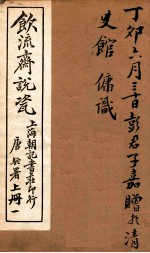 丁卯六月三十日彭君子嘉贈於清
史館 傭識
飲流齋說瓷
上海朝記書莊印行
唐乾著上册一